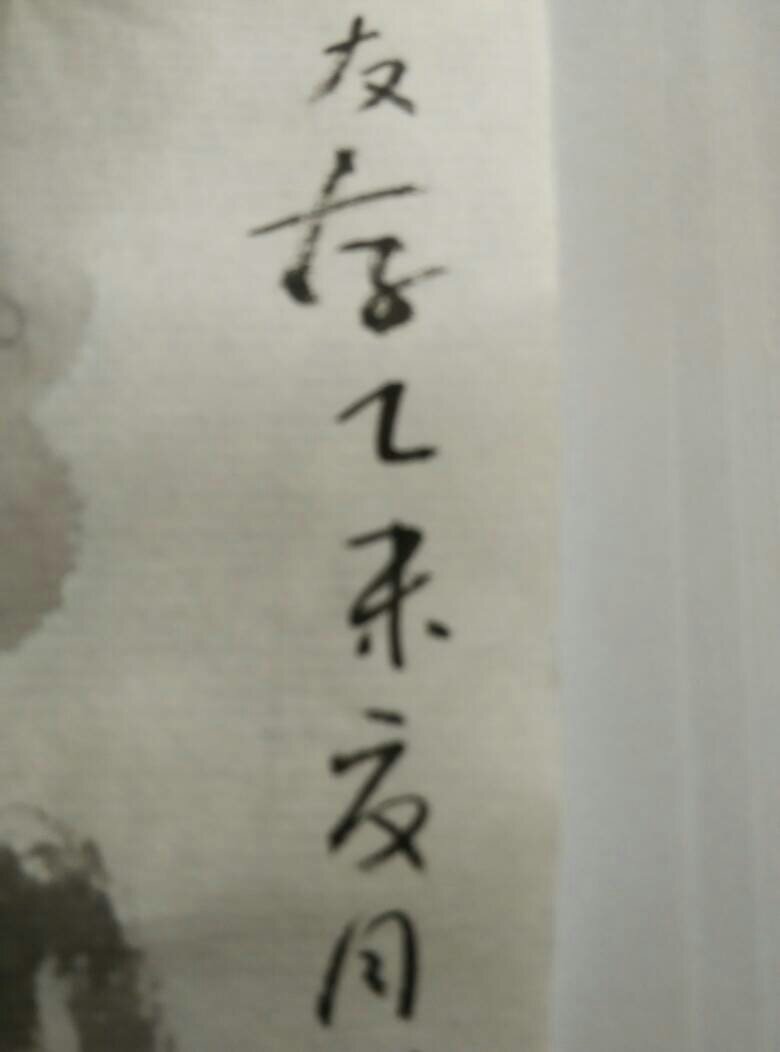 友存乙未夏月